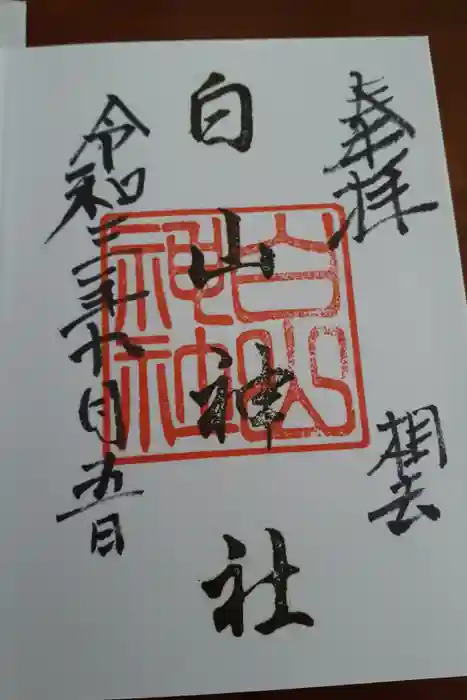 奉拝
相去
白山神社
白山神社
令和三年九月五日